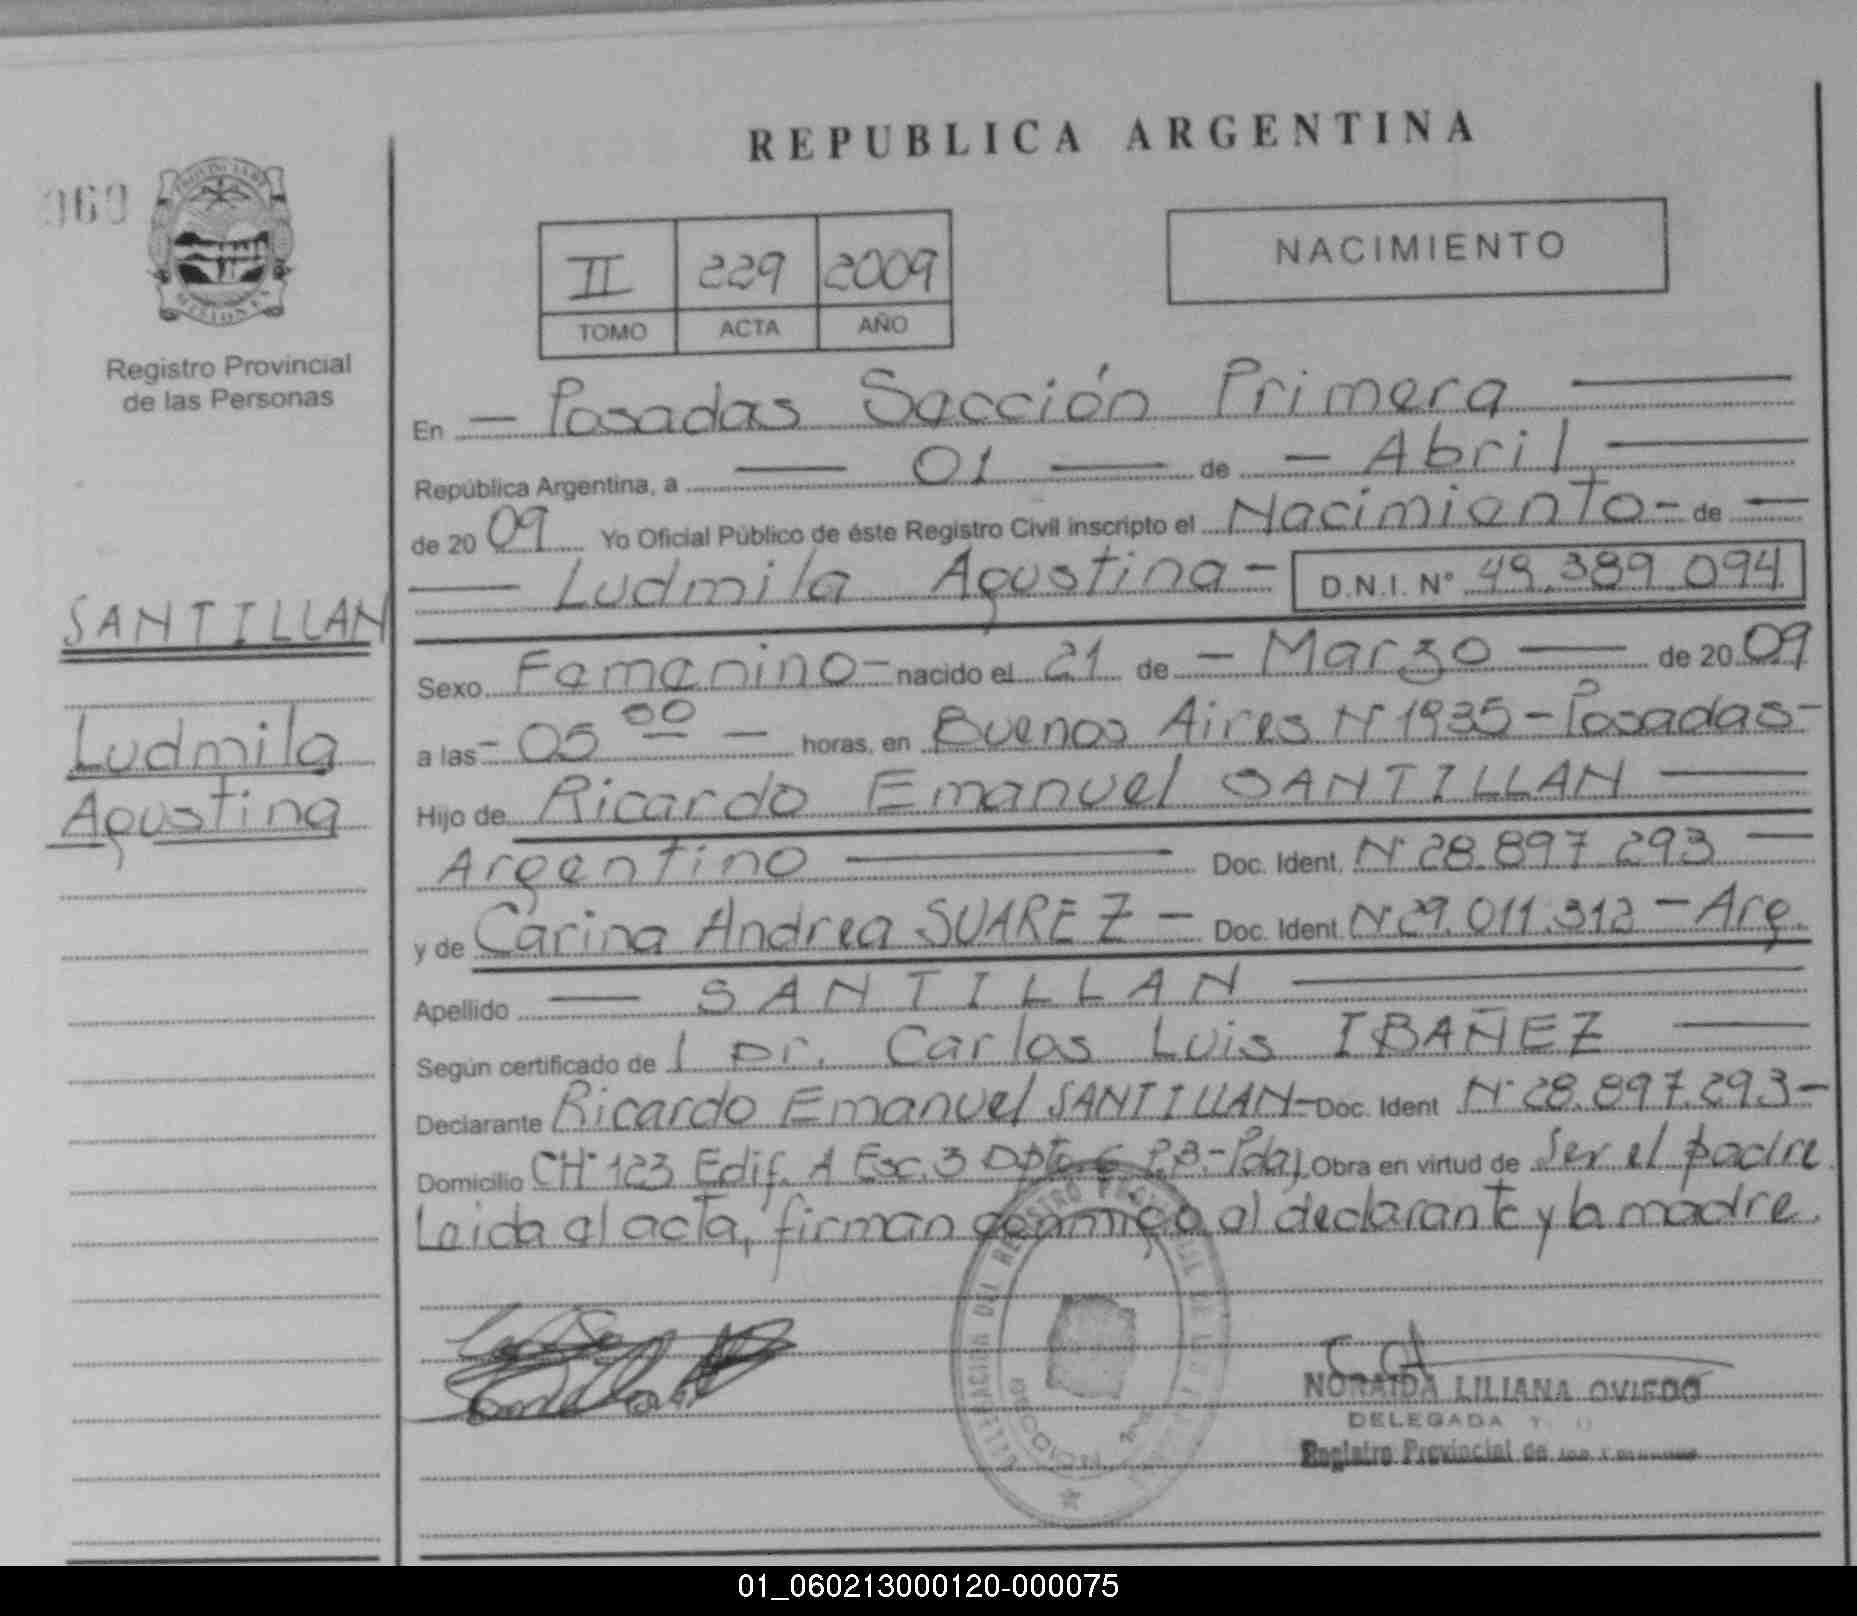 REPUBLICA ARGENTINA
060
PROVINCIA DE
MISIONES
II 229 2009
TOMO ACTA AÑO
NACIMIENTO
Registro Provincial
de las Personas
En — Posadas Sección Primera —
República Argentina, a — 01 — de — Abril —
de 20 09 Yo Oficial Público de éste Registro Civil inscripto el Nacimiento - de —
— Ludmila Agustina - D.N.I. N° 49.389.094
SANTILLAN
Ludmila
Agustina
Sexo Femenino - nacido el 21 de — Marzo — de 20 09
a las - 05 00 — horas, en Buenos Aires N° 1935 - Posadas -
Hijo de Ricardo Emanuel SANTILLAN —
Argentino — Doc. Ident. N° 28.897.293 —
y de Carina Andrea SUAREZ — Doc. Ident. N° 29.011.312 - Arg.
Apellido — SANTILLAN —
Según certificado de l Dr. Carlos Luis IBAÑEZ —
Declarante Ricardo Emanuel SANTILLAN - Doc. Ident N° 28.897.293 -
Domicilio CH° 123 Edif. A Esc. 3 Dpto P.B. - Pdas. Obra en virtud de Ser el padre.
Leida el acta, firman conmigo el declarante y la madre.
NORAIDA LILIANA OVIEDO
DELEGADA
Registro Provincial de las
01_060213000120-000075